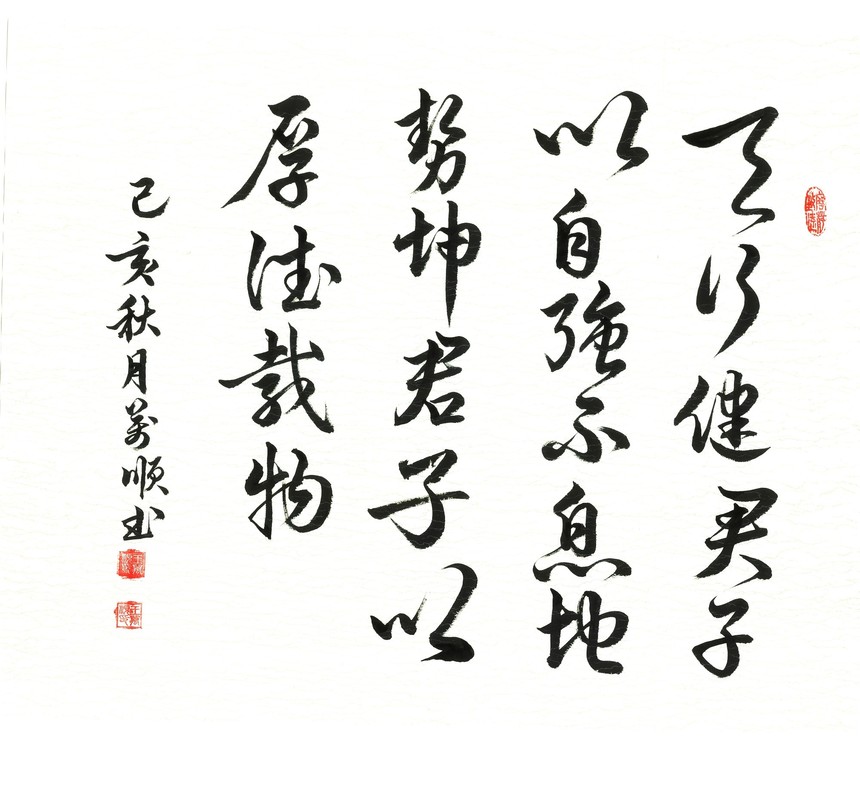 天行健君子
以自強不息地
势坤君子以
厚德载物
己亥秋月万顺书